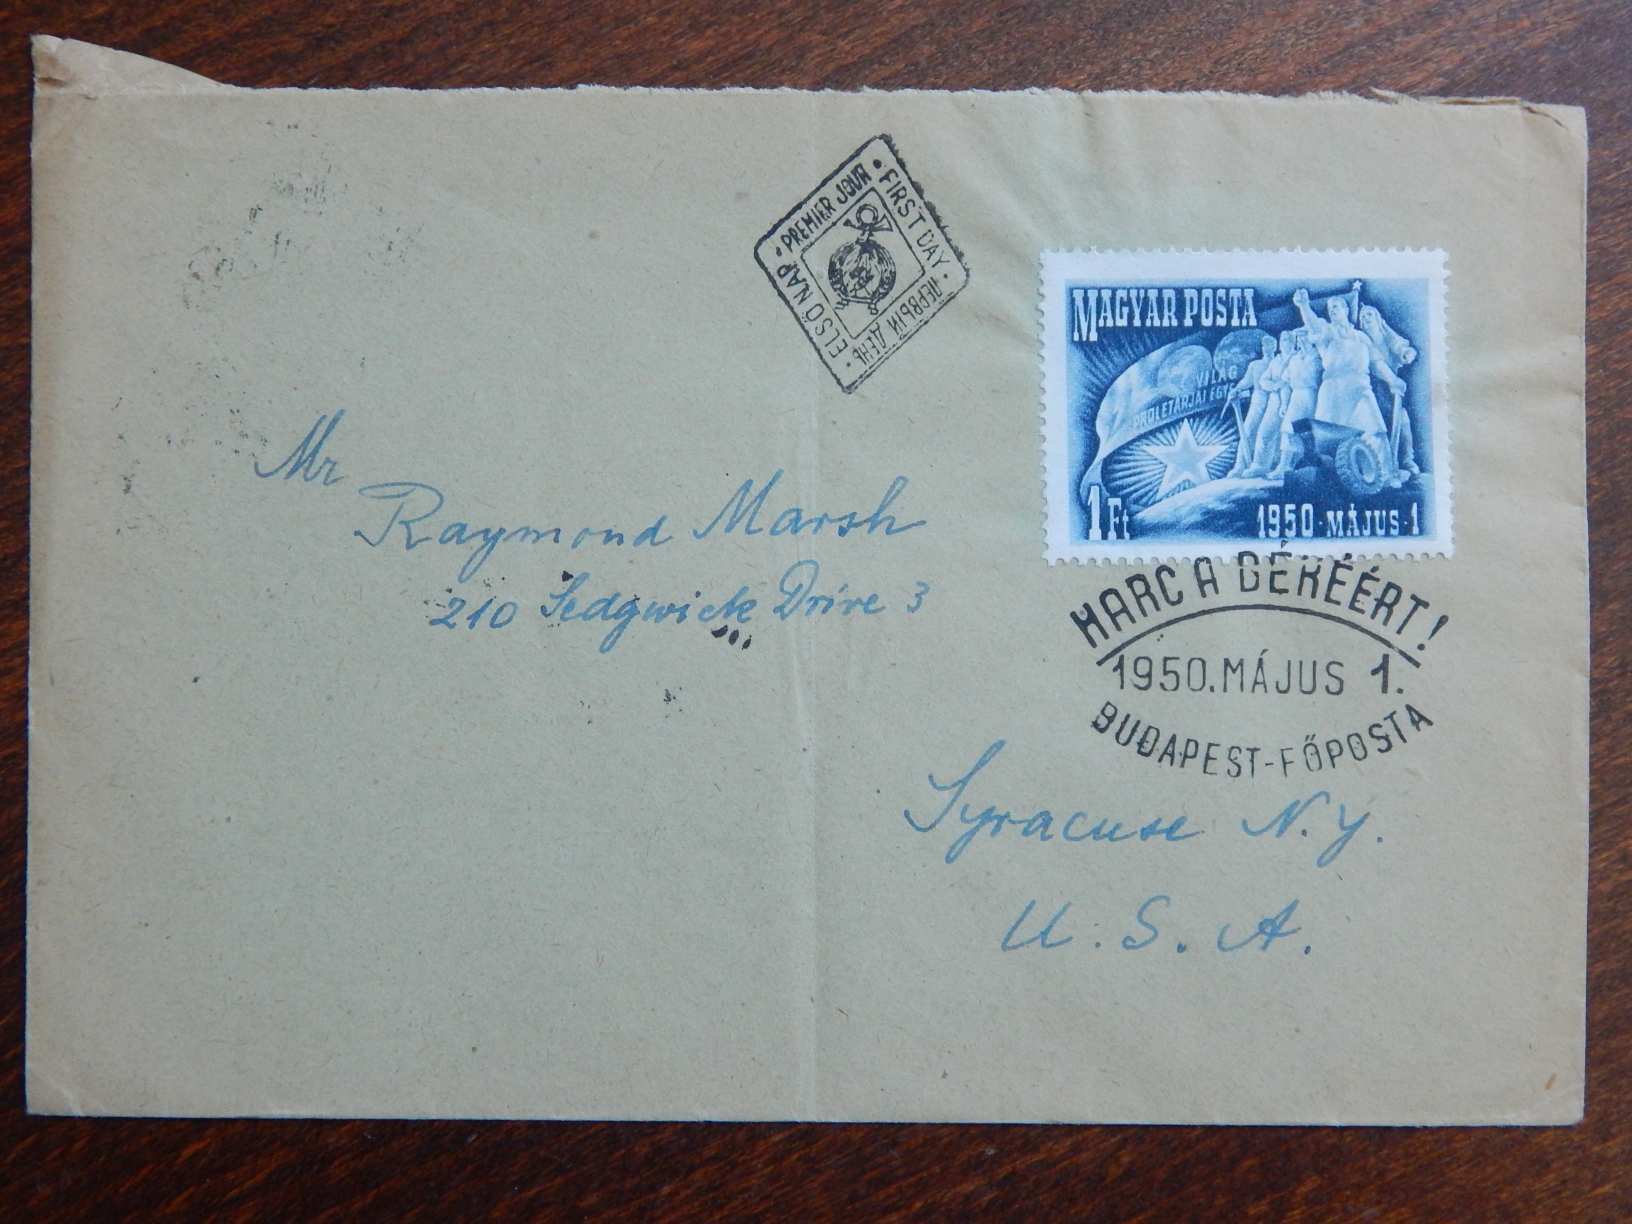 ELSŐ NAP · PREMIER JOUR · FIRST DAY · ПЕРВЫЙ ДЕНЬ ·
MAGYAR POSTA
VILÁG
PROLETÁRJAI EGYE
1 Ft
1950 · MÁJUS · 1
HARC A BÉKÉÉRT!
1950. MÁJUS 1.
BUDAPEST-FŐPOSTA
Mr
Raymond Marsh
210 Sedgwick Drive 3
Syracuse N.Y.
U.S.A.